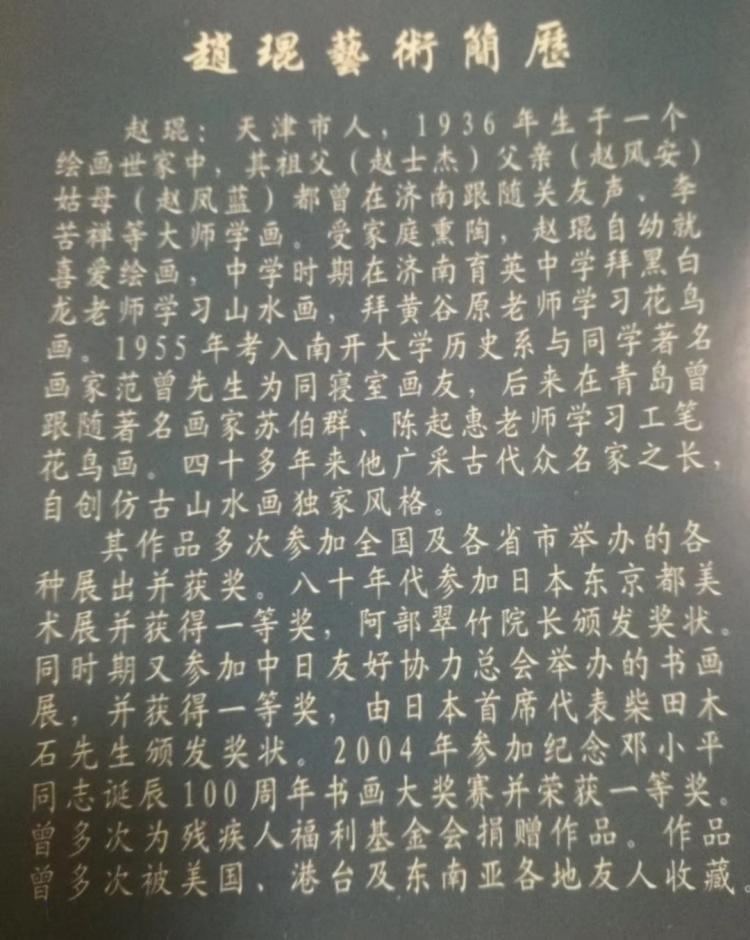 趙琨藝術簡歷
赵琨：天津市人，1936年生于一个
绘画世家中，其祖父（赵士杰）父亲（赵风安）
姑母（赵凤蓝）都曾在济南跟随关友声、李
苦祥等大师学画。受家庭熏陶，赵琨自幼就
喜爱绘画，中学时期在济南育英中学拜黑白
龙老师学习山水画，拜黄谷原老师学习花鸟
画。1955年考入南开大学历史系与同学著名
画家范曾先生为同寝室画友，后来在青岛曾
跟随著名画家苏伯群、陈起惠老师学习工笔
花鸟画。四十多年来他广采古代众名家之长，
自创仿古山水画独家风格。
其作品多次参加全国及各省市举办的各
种展出并获奖。八十年代参加日本东京都美
术展并获得一等奖，阿部翠竹院长颁发奖状。
同时期又参加中日友好协力总会举办的书画
展，并获得一等奖，由日本首席代表柴田木
石先生颁发奖状。2004年参加纪念邓小平
同志诞辰100周年书画大奖赛并荣获一等奖。
曾多次为残疾人福利基金会捐赠作品。作品
曾多次被美国、港台及东南亚各地友人收藏。